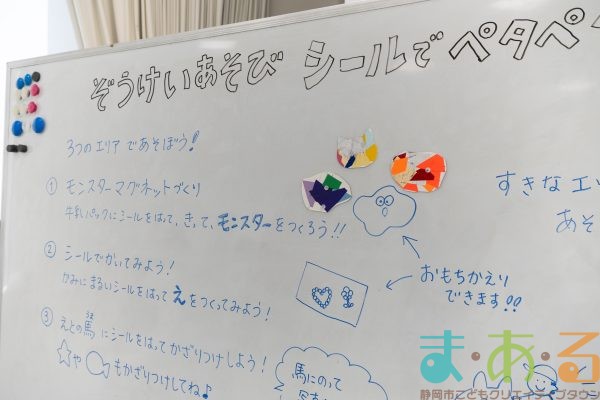 ぞうけいあそび シールで ペタペタ
3つのエリア であそぼう!
すきなエリ
あそ
① モンスターマグネットづくり
牛乳パックにシールをはって、きって、モンスターをつくろう!!
② シールでかいてみよう!
かみに まるいシールをはって えをつくってみよう!
おもちかえり
できます!!
③ えとの馬にシールをはってかざりつけしよう!
☆や もかざりつけしてね♪
馬にのって
ま・あ・る
静岡市こどもクリエイティブタウン